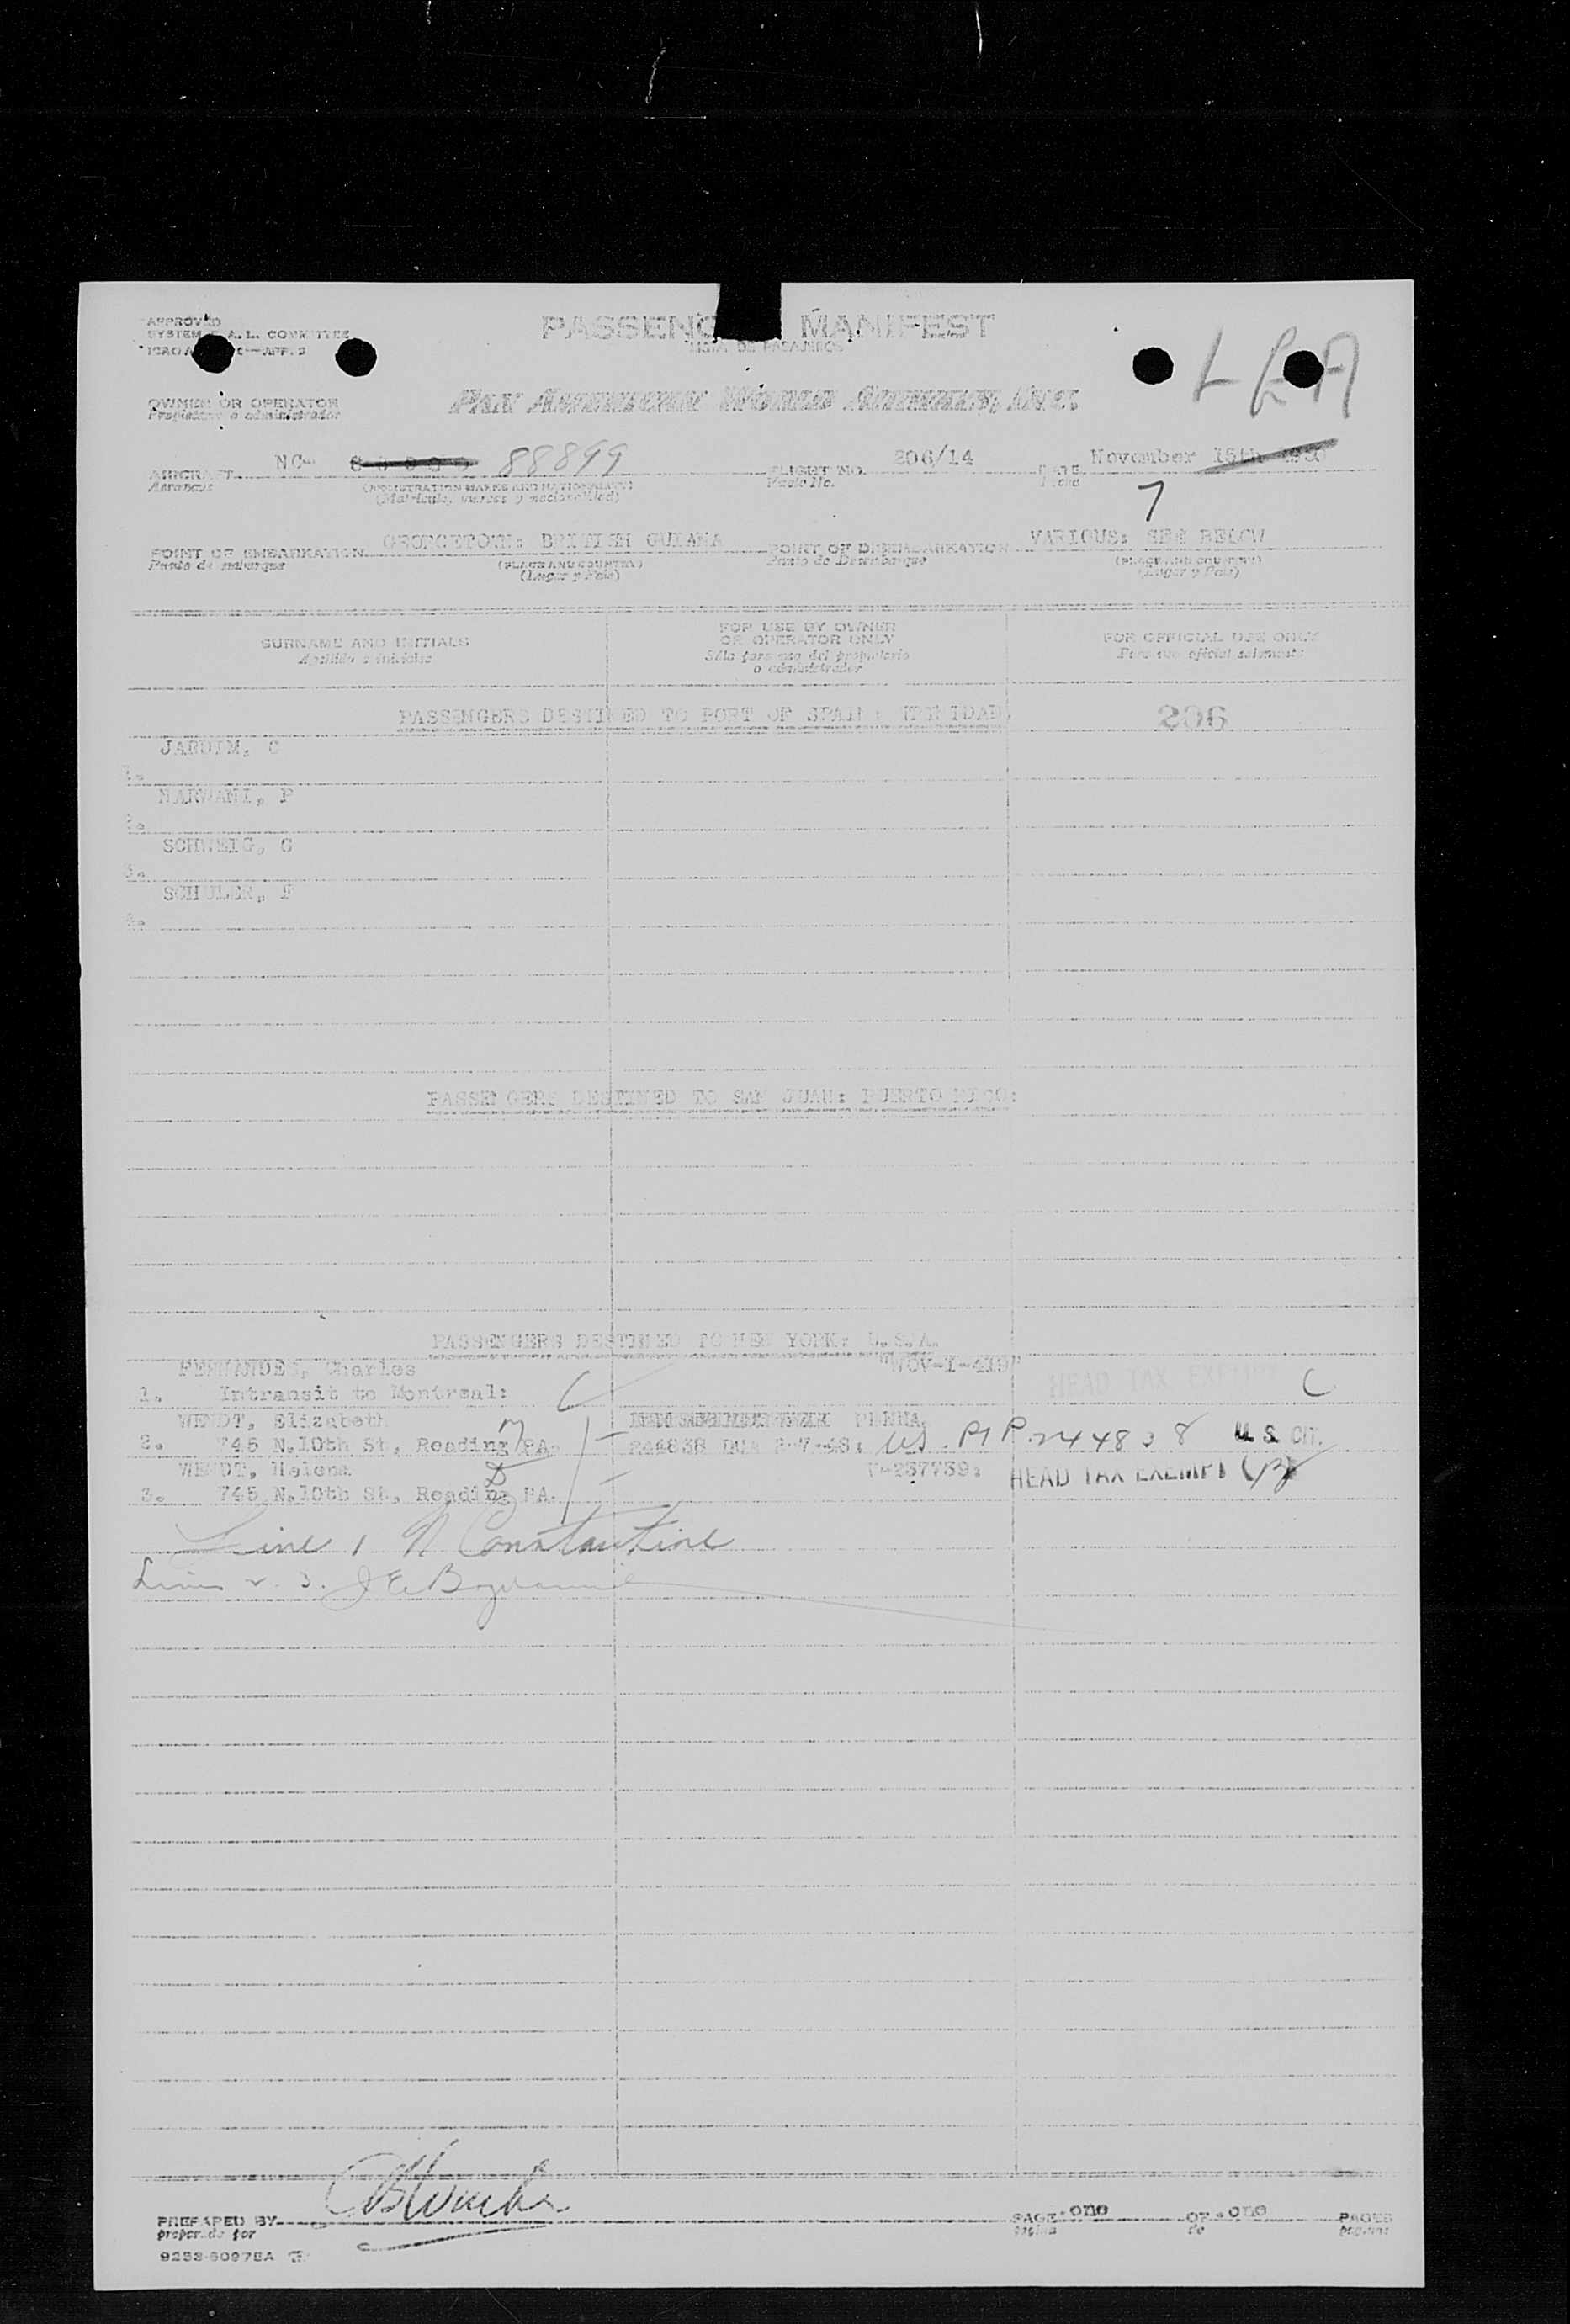 APPROVED
SYSTEM A.L. COMMITTEE
PASSENG MANIFEST
LISTA DE PASAJEROS
LGA
OWNER OR OPERATOR
Propietario o administrador
PAN AMERICAN WORLD AIRWAYS, INC.
AIRCRAFT NC- 88899 FLIGHT NO. 206/14 November 15th
Aeronave (REGISTRATION MARKS AND NATIONALITY) Vuelo No. Fecha
(Matrícula, marcas y nacionalidad) 7
POINT OF EMBARKATION GEORGETOWN: BRITISH GUIANA POINT OF DISEMBARKATION VARIOUS: SEE BELOW
Punto de embarque (PLACE AND COUNTRY) Punto de Desembarque (PLACE AND COUNTRY)
(Lugar y País) (Lugar y País)
SURNAME AND INITIALS FOR USE BY OWNER OR OPERATOR ONLY FOR OFFICIAL USE ONLY
Apellido e iniciales Sólo para uso del propietario o administrador Para uso oficial solamente
PASSENGERS DESTINED TO PORT OF SPAIN: TRINIDAD: 206
JARDIM, C
1.
NARWANI, P
2.
SCHWEIG, C
3.
SCHULER, F
4.
PASSENGERS DESTINED TO SAN JUAN: PUERTO RICO:
PASSENGERS DESTINED TO NEW YORK: U.S.A.
FERNANDES, Charles "NOV-I-419"
1. Intransit to Montreal: C HEAD TAX EXEMPT C
WENDT, Elizabeth PENNA.
2. 745 N.10th St, Reading PA. 244838 US. PP 244838 U.S. CIT.
WENDT, Helena F-237739: HEAD TAX EXEMPT
3. 745 N.10th St, Reading PA.
Line 1 N Constantine
Lines 2. 3. J E
PREPARED BY PAGE one OF one PAGES
preparado por página de páginas
9253-60975A